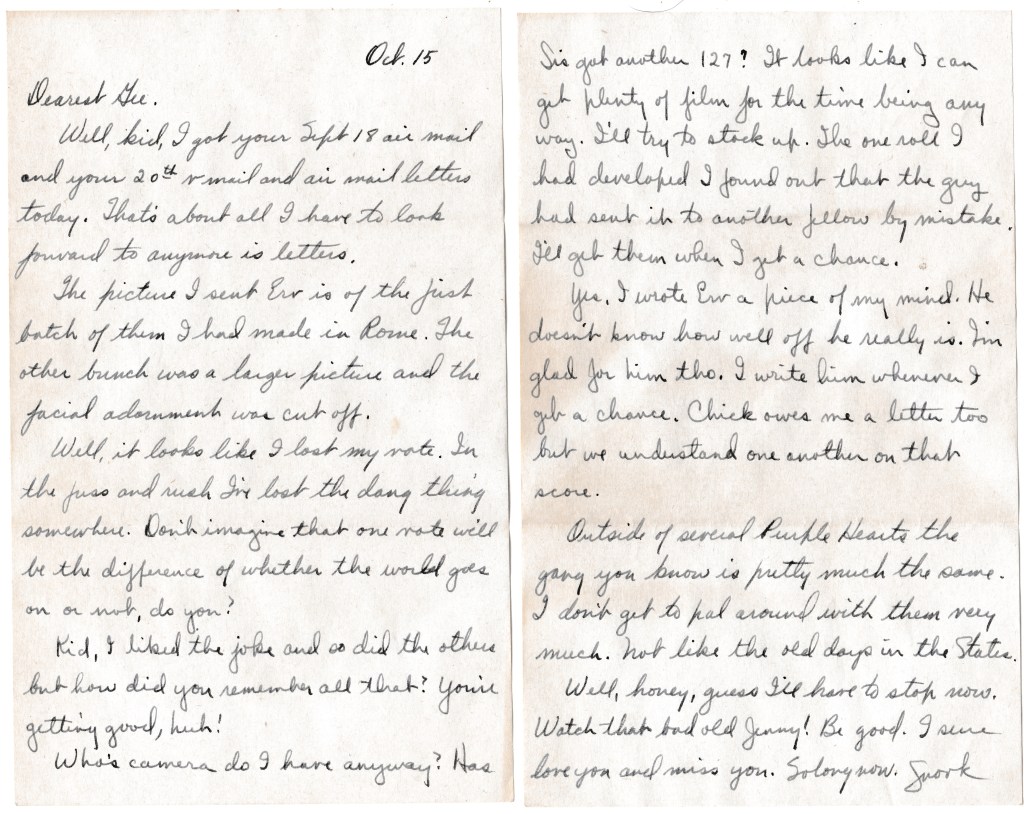 Oct. 15
Dearest Gee.
Well, kid, I got your Sept 18 air mail
and your 20th v mail and air mail letters
today. That's about all I have to look
forward to anymore is letters.
The picture I sent Erv is of the first
batch of them I had made in Rome. The
other bunch was a larger picture and the
facial adornment was cut off.
Well, it looks like I lost my vote. In
the fuss and rush I've lost the dang thing
somewhere. Don't imagine that one vote will
be the difference of whether the world goes
on or not, do you?
Kid, I liked the joke and so did the others
but how did you remember all that? You're
getting good, huh!
Who's camera do I have anyway? Has
Sis got another 127? It looks like I can
get plenty of film for the time being any
way. I'll try to stock up. The one roll I
had developed I found out that the guy
had sent it to another fellow by mistake.
I'll get them when I get a chance.
Yes, I wrote Erv a piece of my mind. He
doesn't know how well off he really is. I'm
glad for him tho. I write him whenever I
get a chance. Chick owes me a letter too
but we understand one another on that
score.
Outside of several Purple Hearts the
gang you know is pretty much the same.
I don't get to pal around with them very
much. Not like the old days in the States.
Well, honey, guess I'll have to stop now.
Watch that bad old Jenny! Be good. I sure
love you and miss you. So long now. Snork